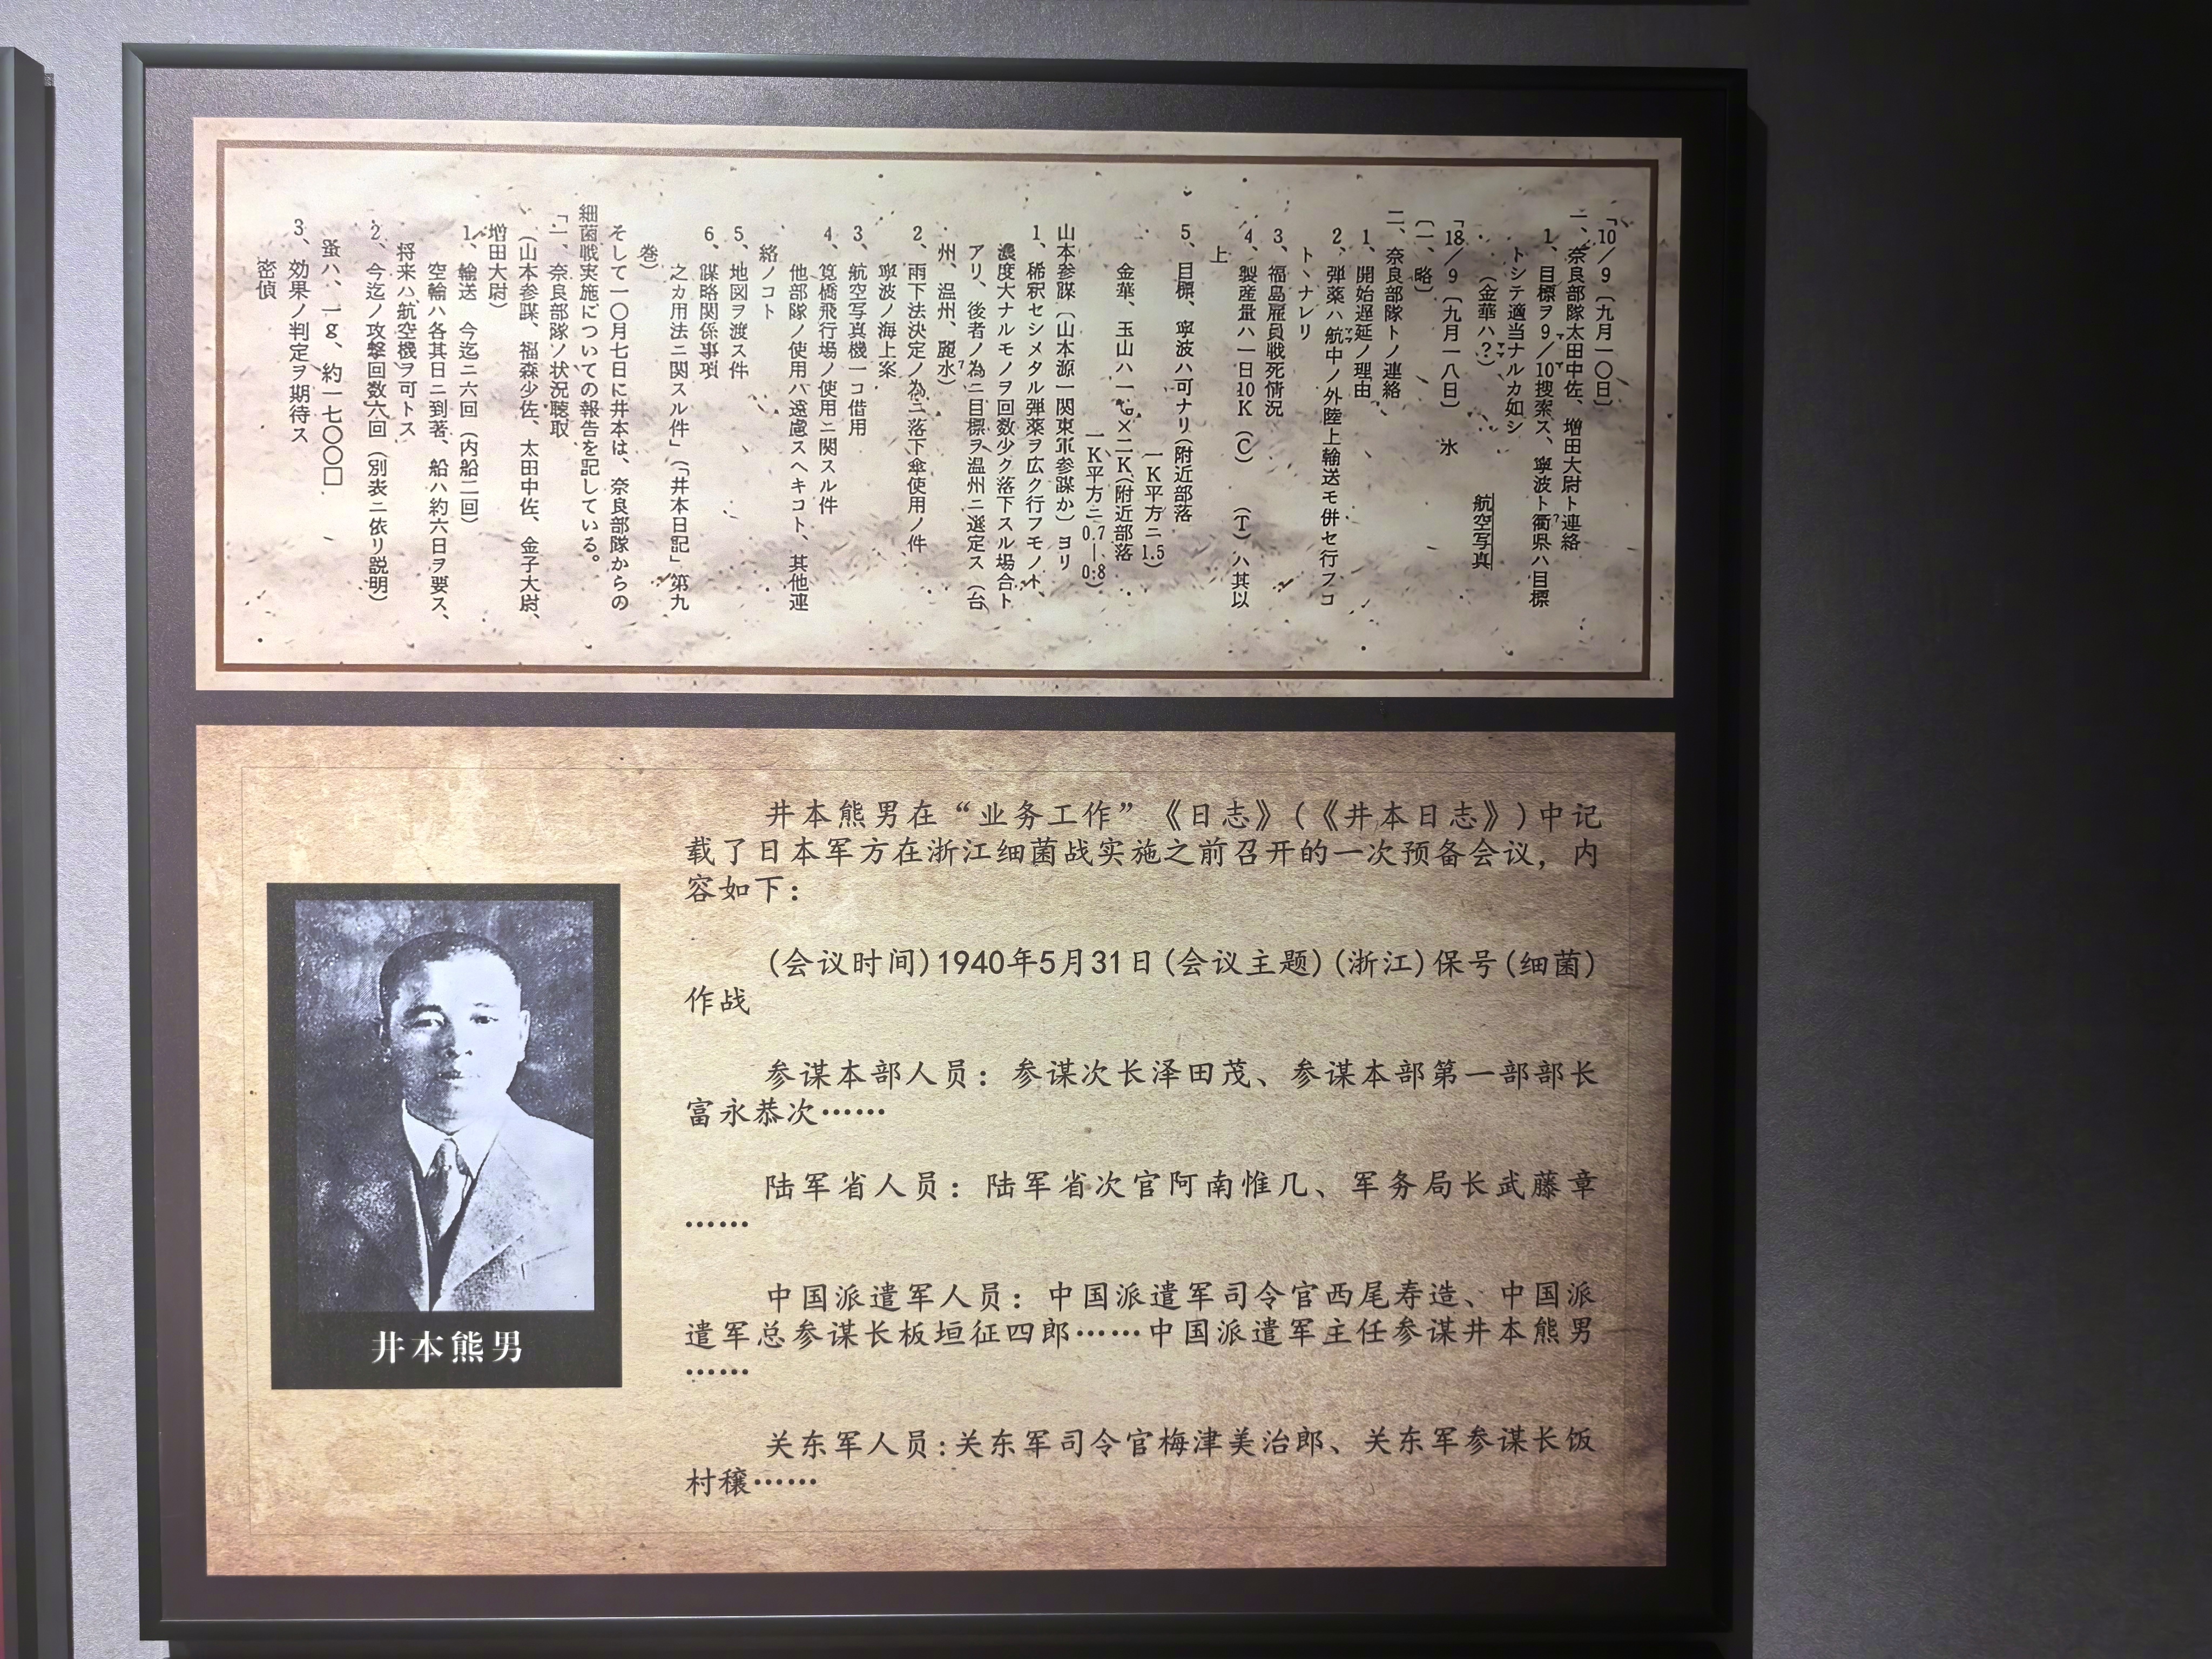 「10/9〔九月一〇日〕
一、奈良部隊太田中佐、増田大尉ト連絡
1、目標ヲ9/10捜索ス、寧波ト衢県ハ目標
トシテ適当ナルカ如シ
(金華ハ?)
航空写真
「18/9〔九月一八日〕 氷
〔一、略〕
二、奈良部隊トノ連絡
1、開始遅延ノ理由
2、弾薬ハ航中ノ外陸上輸送モ併セ行フコ
トヽナレリ
3、福島雇員戦死情況
4、製産量ハ一日10K(C) (T)ハ其以
上
5、目標、寧波ハ可ナリ(附近部落
一K平方ニ1.5)
金華、玉山ハ一 ×二K(附近部落
一K平方ニ0.7—0.8)
山本参謀〔山本源一関東軍参謀か〕ヨリ
1、稀釈セシメタル弾薬ヲ広ク行フモノト、
濃度大ナルモノヲ回数少ク落下スル場合ト
アリ、後者ノ為ニ目標ヲ温州ニ選定ス(台
州、温州、麗水)
2、雨下法決定ノ為ニ落下傘使用ノ件
寧波ノ海上案
3、航空写真機一コ借用
4、筧橋飛行場ノ使用ニ関スル件
他部隊ノ使用ハ遠慮スヘキコト、其他連
絡ノコト
5、地図ヲ渡ス件
6、謀略関係事項
之カ用法ニ関スル件」(「井本日記」第九
巻)
そして一〇月七日に井本は、奈良部隊からの
細菌戦実施についての報告を記している。
「一、奈良部隊ノ状況聴取
(山本参謀、福森少佐、太田中佐、金子大尉、
増田大尉)
1、輸送 今迄ニ六回(内船二回)
空輸ハ各其日ニ到著、船ハ約六日ヲ要ス、
将来ハ航空機ヲ可トス
2、今迄ノ攻撃回数六回(別表ニ依リ説明)
蚤ハ、一g、約一七〇〇□
3、効果ノ判定ヲ期待ス
密偵
井本熊男在“业务工作”《日志》(《井本日志》)中记
载了日本军方在浙江细菌战实施之前召开的一次预备会议，内
容如下：
(会议时间)1940年5月31日(会议主题)(浙江)保号(细菌)
作战
参谋本部人员：参谋次长泽田茂、参谋本部第一部部长
富永恭次……
陆军省人员：陆军省次官阿南惟几、军务局长武藤章
……
中国派遣军人员：中国派遣军司令官西尾寿造、中国派
遣军总参谋长板垣征四郎……中国派遣军主任参谋井本熊男
……
关东军人员:关东军司令官梅津美治郎、关东军参谋长饭
村穰……
井本熊男